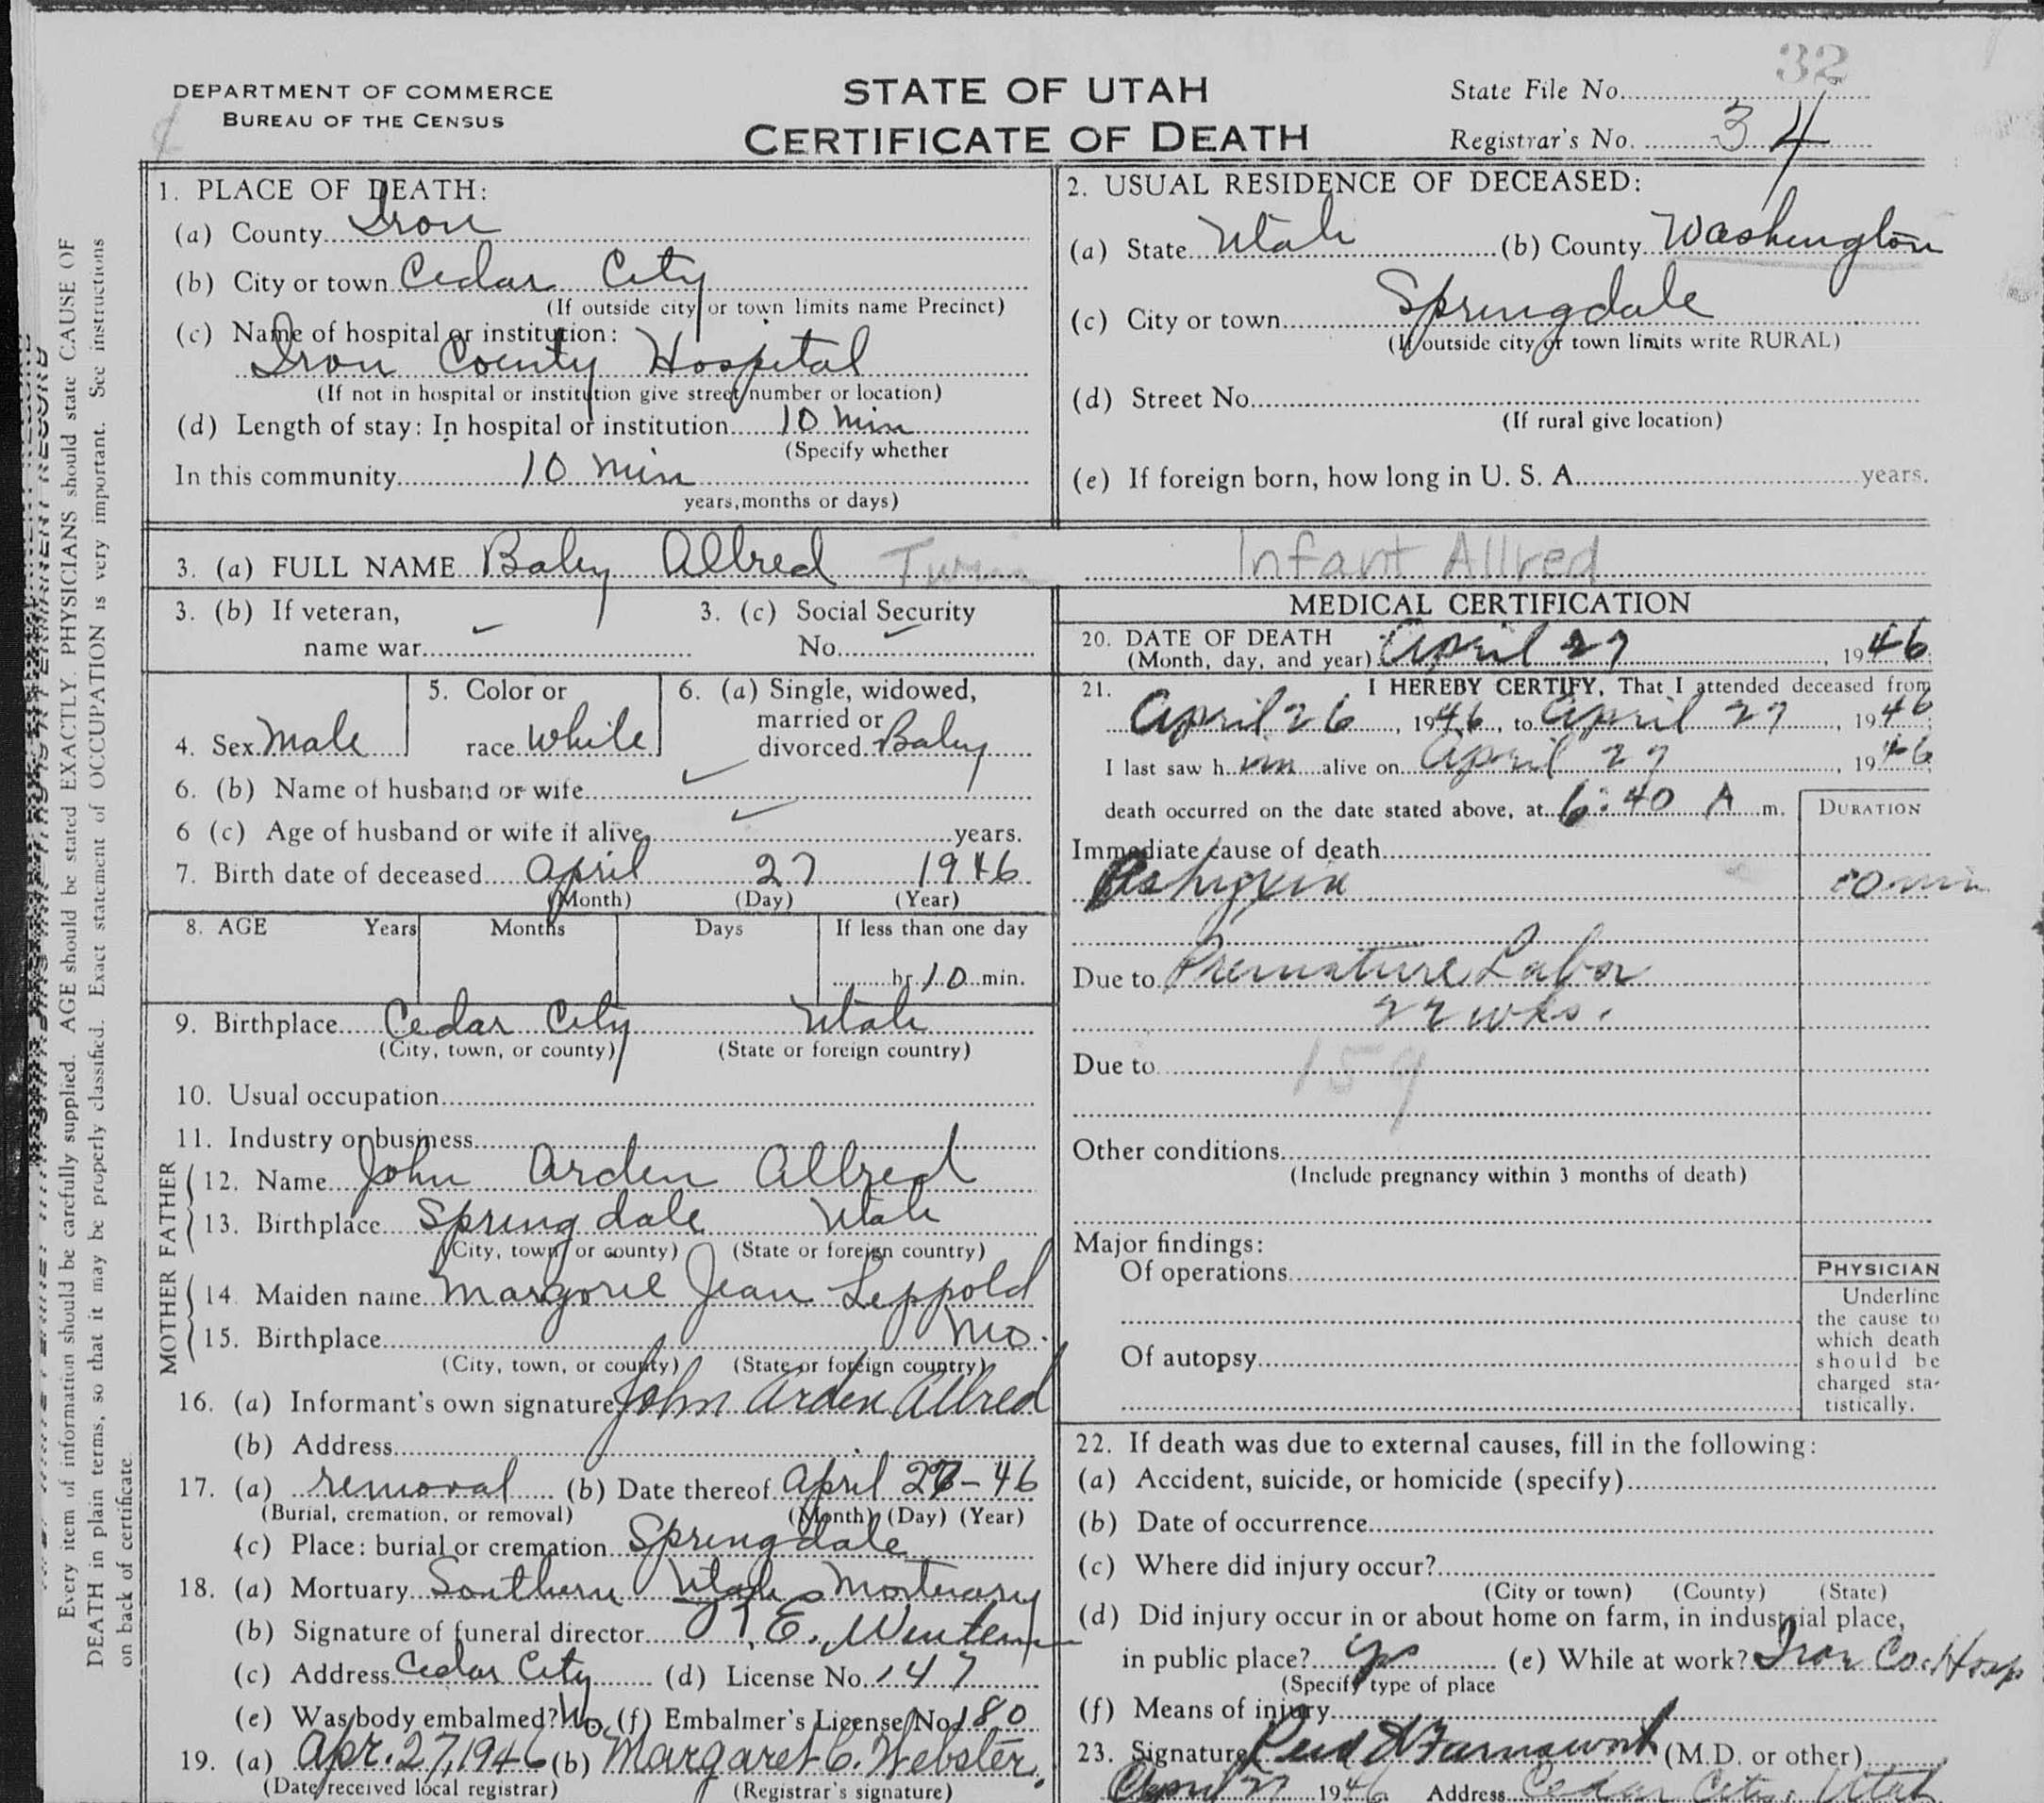 32
DEPARTMENT OF COMMERCE
BUREAU OF THE CENSUS
STATE OF UTAH
CERTIFICATE OF DEATH
State File No.
Registrar's No. 34
Every item of information should be carefully supplied. AGE should be stated EXACTLY. PHYSICIANS should state CAUSE OF
DEATH in plain terms, so that it may be properly classified. Exact statement of OCCUPATION is very important. See instructions
on back of certificate.
1. PLACE OF DEATH:
(a) County Iron
(b) City or town Cedar City
(If outside city or town limits name Precinct)
(c) Name of hospital or institution:
Iron County Hospital
(If not in hospital or institution give street number or location)
(d) Length of stay: In hospital or institution 10 min
(Specify whether
In this community 10 min
years, months or days)
2. USUAL RESIDENCE OF DECEASED:
(a) State Utah (b) County Washington
(c) City or town Springdale
(If outside city or town limits write RURAL)
(d) Street No.
(If rural give location)
(e) If foreign born, how long in U. S. A. years.
3. (a) FULL NAME Baby Allred Twin Infant Allred
3. (b) If veteran,
name war
3. (c) Social Security
No.
4. Sex Male
5. Color or
race White
6. (a) Single, widowed,
married or
divorced Baby
6. (b) Name of husband or wife
6 (c) Age of husband or wife if alive years.
7. Birth date of deceased April 27 1946
(Month) (Day) (Year)
8. AGE Years Months Days If less than one day
hr 10 min.
9. Birthplace Cedar City Utah
(City, town, or county) (State or foreign country)
10. Usual occupation
11. Industry or business
FATHER
12. Name John Arden Allred
13. Birthplace Springdale Utah
(City, town, or county) (State or foreign country)
MOTHER
14. Maiden name Margorie Jean Leppold
15. Birthplace Mo.
(City, town, or county) (State or foreign country)
16. (a) Informant's own signature John Arden Allred
(b) Address
17. (a) removal (b) Date thereof April 27-46
(Burial, cremation, or removal) (Month) (Day) (Year)
(c) Place: burial or cremation Springdale
18. (a) Mortuary Southern Utah Mortuary
(b) Signature of funeral director
(c) Address Cedar City (d) License No. 147
(e) Was body embalmed? No. (f) Embalmer's License No. 180
19. (a) Apr. 27, 1946 (b) Margaret C. Webster.
(Date received local registrar) (Registrar's signature)
MEDICAL CERTIFICATION
20. DATE OF DEATH
(Month, day, and year) April 27, 1946
21. I HEREBY CERTIFY, That I attended deceased from
April 26, 1946, to April 27, 1946;
I last saw h im alive on April 27, 1946
death occurred on the date stated above, at 6:40 A m.
DURATION
Immediate cause of death
min
Due to Premature Labor
22 wks.
Due to 159
Other conditions
(Include pregnancy within 3 months of death)
Major findings:
Of operations
Of autopsy
PHYSICIAN
Underline
the cause to
which death
should be
charged sta-
tistically.
22. If death was due to external causes, fill in the following:
(a) Accident, suicide, or homicide (specify)
(b) Date of occurrence
(c) Where did injury occur?
(City or town) (County) (State)
(d) Did injury occur in or about home on farm, in industrial place,
in public place? yes (e) While at work? Iron Co. Hosp
(Specify type of place
(f) Means of injury
23. Signature Farnsworth (M.D. or other)
April 27 1946 Address Cedar City, Utah